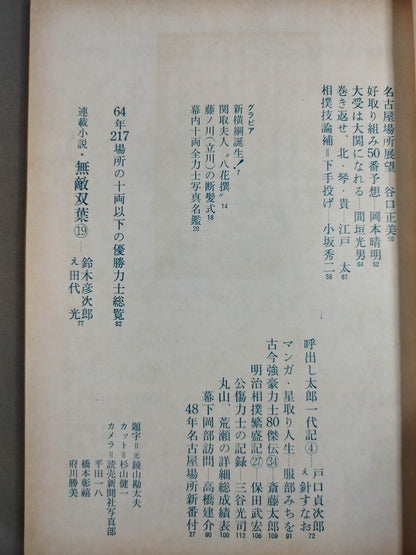 名古屋場所展望……谷口正美50
好取り組み50番予想…岡本晴明52
大受は大関になれる…間垣光男64
巻き返せ、北・琴・貴…江戸 太67
相撲技論補=下手投げ…小坂秀二56
グラビア
新横綱誕生!7
関取夫人“八花撰”14
藤ノ川(立川)の断髪式18
幕内十両全力士写真名鑑20
64年217場所の十両以下の優勝力士総覧82
連載小説・無敵双葉⑲……鈴木彦次郎
え 田代 光77
呼出し太郎一代記④…戸口貞次郎
え 針すなお72
マンガ・星取り人生…服部みちを91
古今強豪力士80傑伝㉞…斎藤太郎109
明治相撲繁盛記㉗…保田武宏106
公傷力士の記録…三谷光司112
丸山、荒瀬の詳細総成績表100
幕下岡部訪問…高橋建介90
48年名古屋場所新番付27
題字=元鏡山勘太夫
カット=杉山健一
カメラ=読売新聞社写真部
半田一八
橋本彰禧
府川勝美